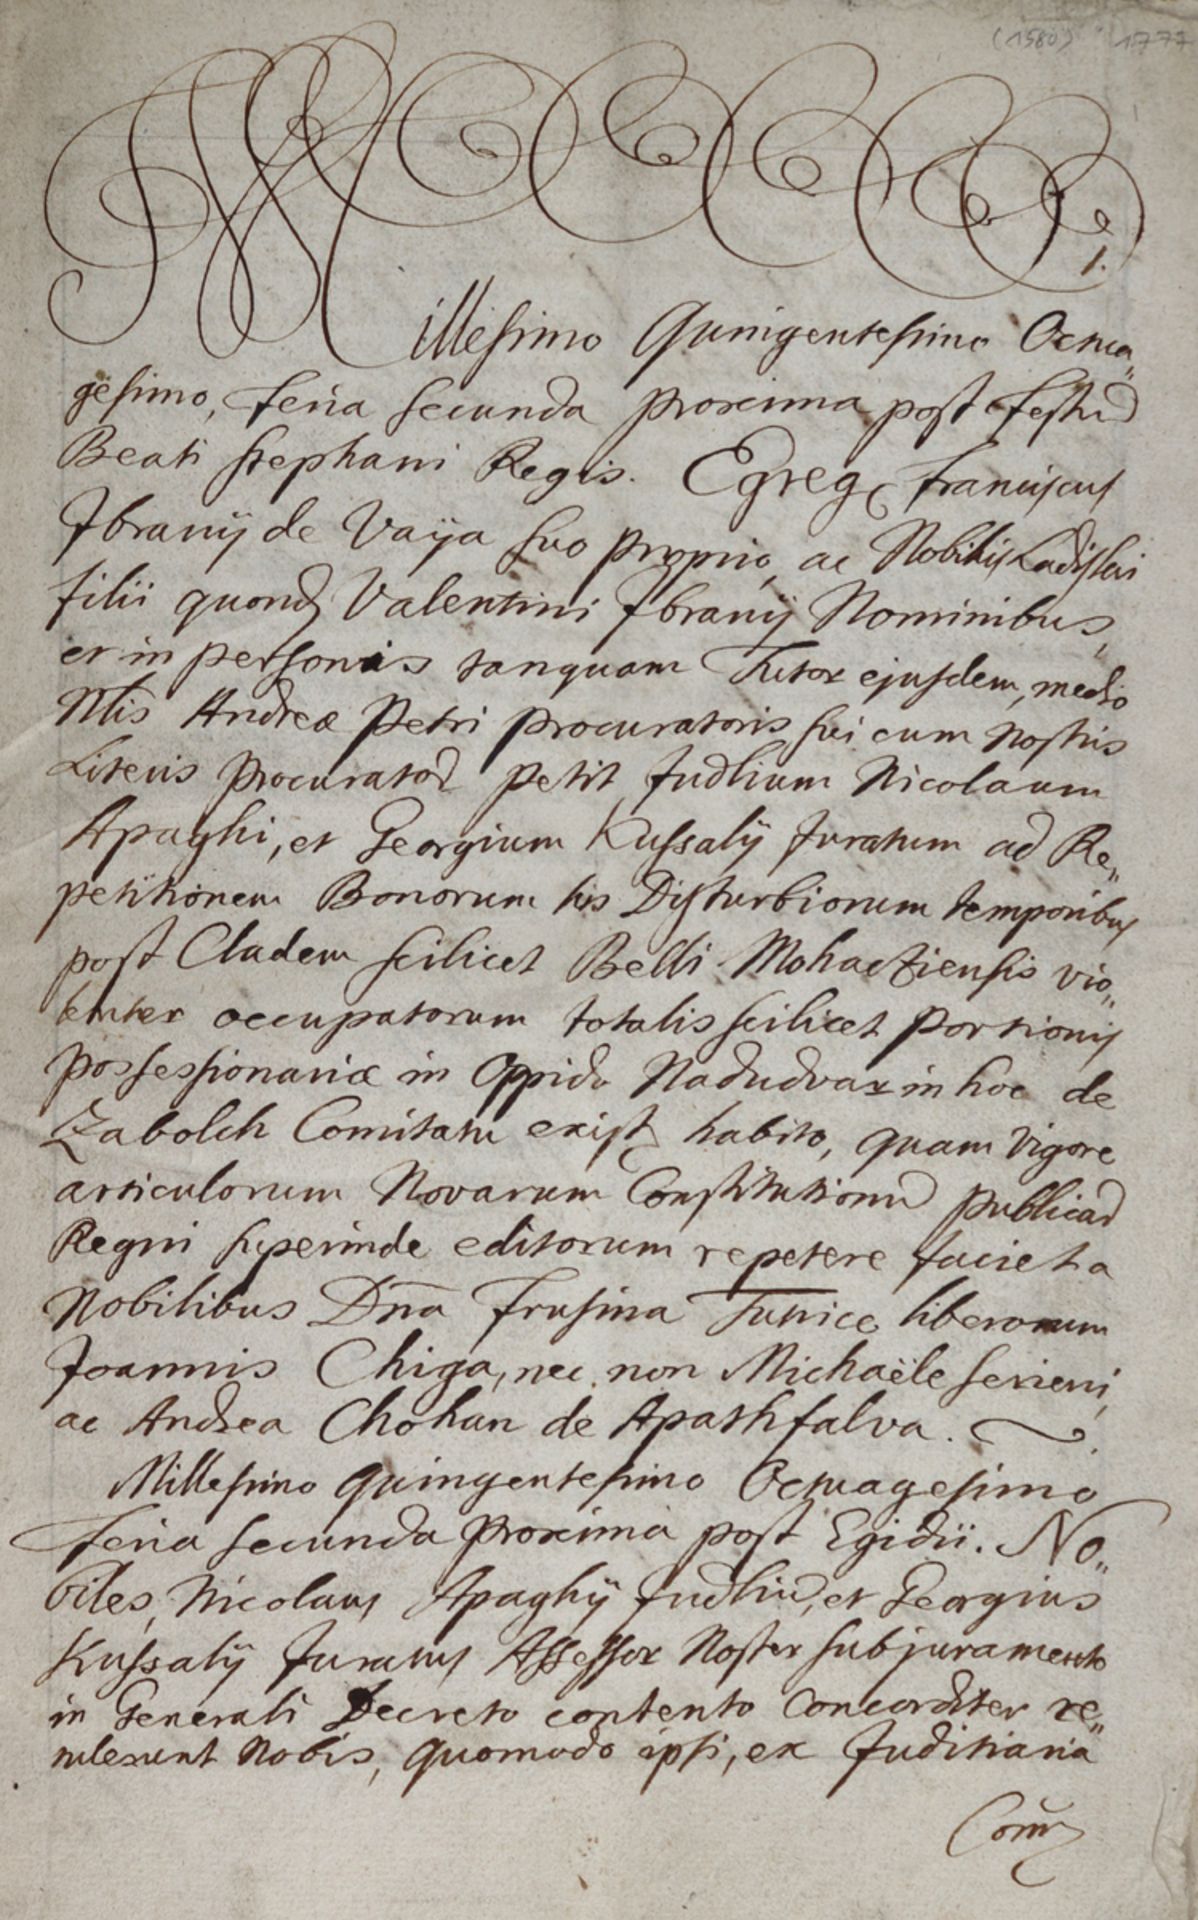 (1580) 1777
1.
Millesimo Quingentesimo Octua„
gesimo, feria secunda proxima post festu͂
Beati Stephani Regis. Egreg. Franciscus
Ibranÿ de Vaÿa suo proprio, ac Nobilis Ladislai
filii quond. Valentini Ibranÿ Nominibus,
et in personis tanquam Tutor ejusdem, medio
Nlis Andreæ Petri procuratoris sui cum nostris
Literis Procurator͂ petit Judlium Nicolaum
Apaghi, et Georgium Kussalÿ Juratum ad Re„
petitionem Bonorum his Disturbiorum temporibus
post Cladem scilicet Belli Mohacziensis vio„
lenter occupatorum totalis scilicet portionis
possessionariæ in Oppido Nadudvar in hoc de
Zabolch Comitatu exist. habito, quam vigore
articulorum Novarum Constitutionu͂ publicar͂
Regni superinde editorum repetere faciet a
Nobilibus Dn̄a Frusina Tutrice liberorum
Joannis Chiga, nec non Michaële Serieni,
ac Andrea Chohan de Apathfalva.
Millesimo quingentesimo Octuagesimo
feria secunda proxima post Egidii. No„
biles, Nicolaus Apaghÿ Judliu͂, et Georgius
Kussalÿ Juratus Assessor Noster sub juramento
in Generali Decreto contento Concorditer re„
tulerunt Nobis, quomodo ipsi, ex Juditiaria
Com̄